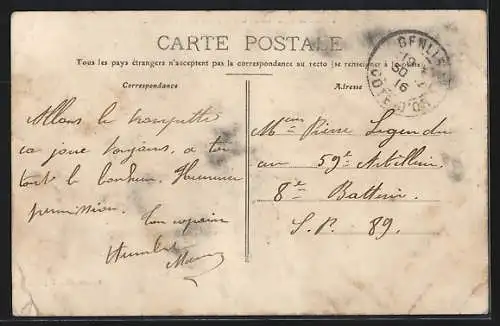 CARTE POSTALE
Tous les pays étrangers n'acceptent pas la correspondance au recto (se renseigner à la poste)
Correspondance
Adresse
GENLIS
COTE-D'OR
Allons le trompette
ça joue toujours, a toi
tout le bonheur.
permission.
Ton copain
Humbert
Pierre Legendre
au 59e Artillerie
8e Batterie
S. P. 89.